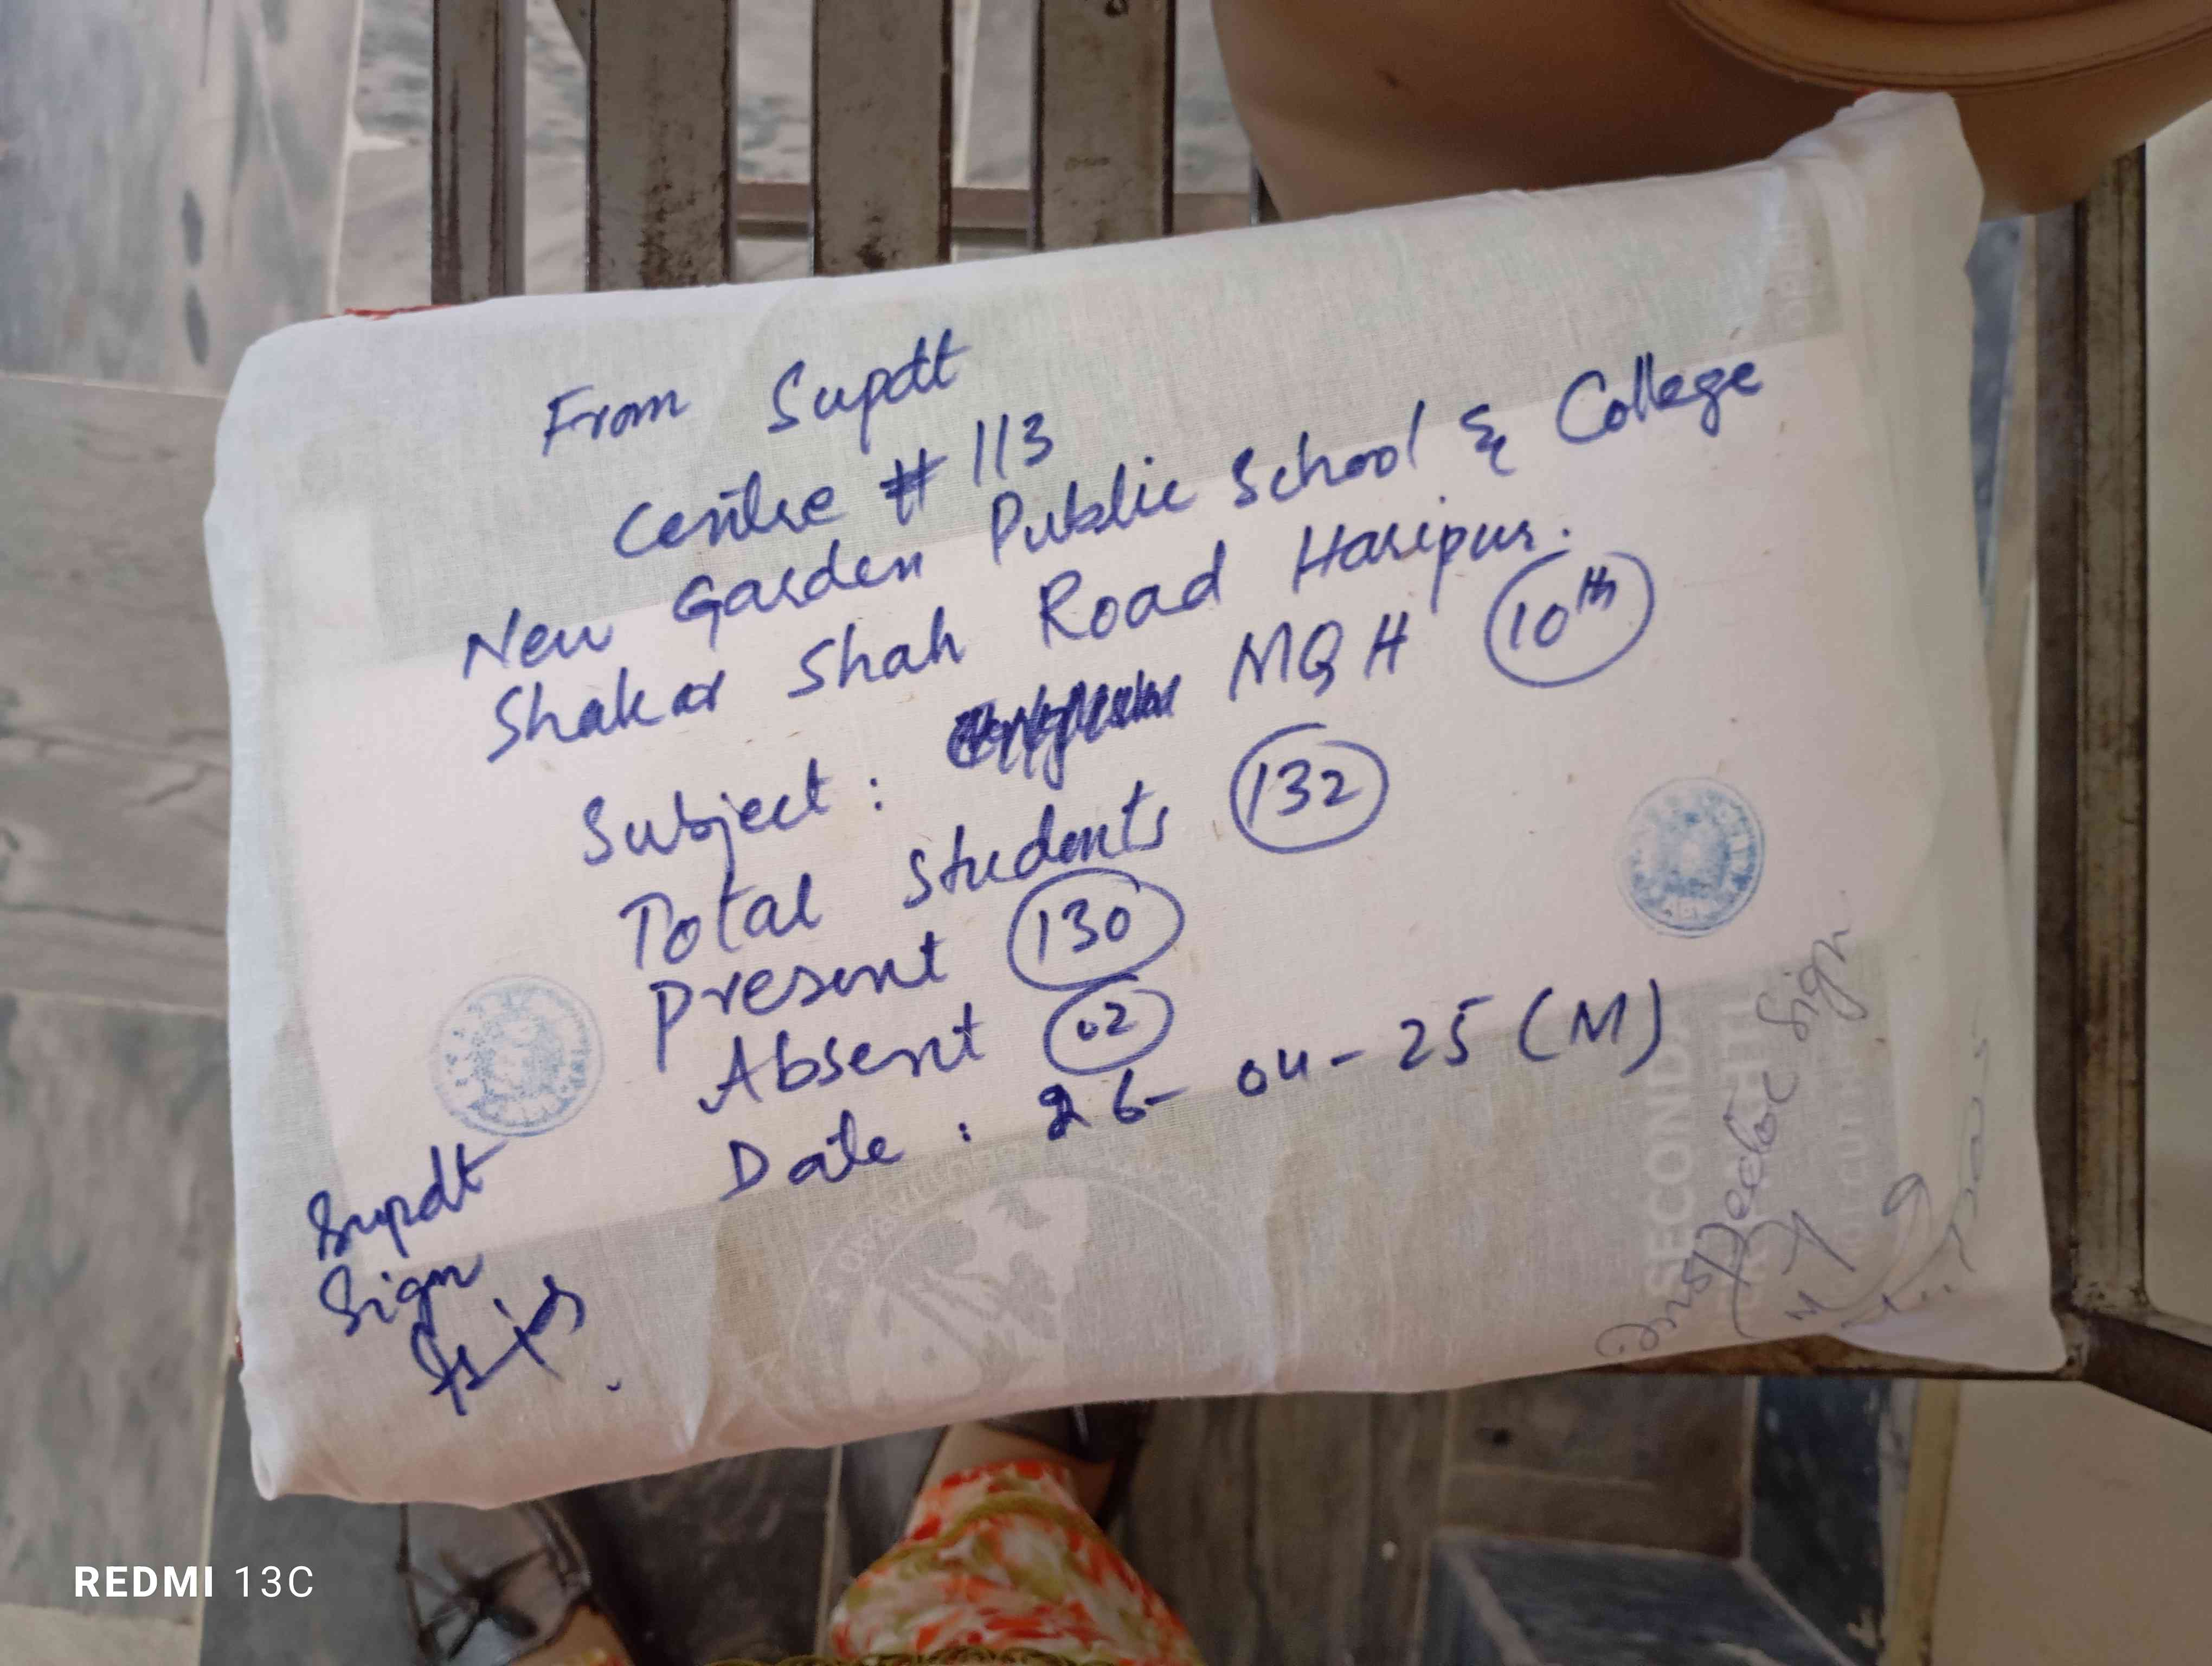 From Supdt
Centre # 113
New Garden Public School & College
Shakar Shah Road Haripur.
Subject: MQH 10th
Total Students 132
Present 130
Absent 02
Date: 26-04-25 (M)
Supdt
Sign
Inspector Sign
SECONDA
REDMI 13C